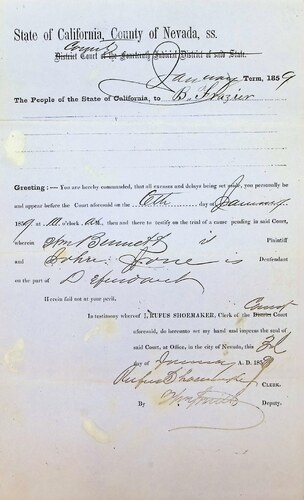 State of California, County of Nevada, ss.
County
District Court of the Fourteenth Judicial District of said State.
January Term, 1859
The People of the State of California, to B. Frazier
Greeting:—You are hereby commanded, that all excuses and delays being set aside, you personally be
and appear before the Court aforesaid on the 6th day of January
1859 at o'clock A.M., then and there to testify on the trial of a cause pending in said Court,
wherein Wm Bennett is Plaintiff
and John Jone is Defendant
on the part of Defendant
Herein fail not at your peril.
In testimony whereof I, RUFUS SHOEMAKER, Clerk of the District Court
aforesaid, do hereunto set my hand and impress the seal of
said Court, at Office, in the city of Nevada, this 3d
day of January A. D. 1859
Rufus Shoemaker CLERK.
By Wm Smith Deputy.